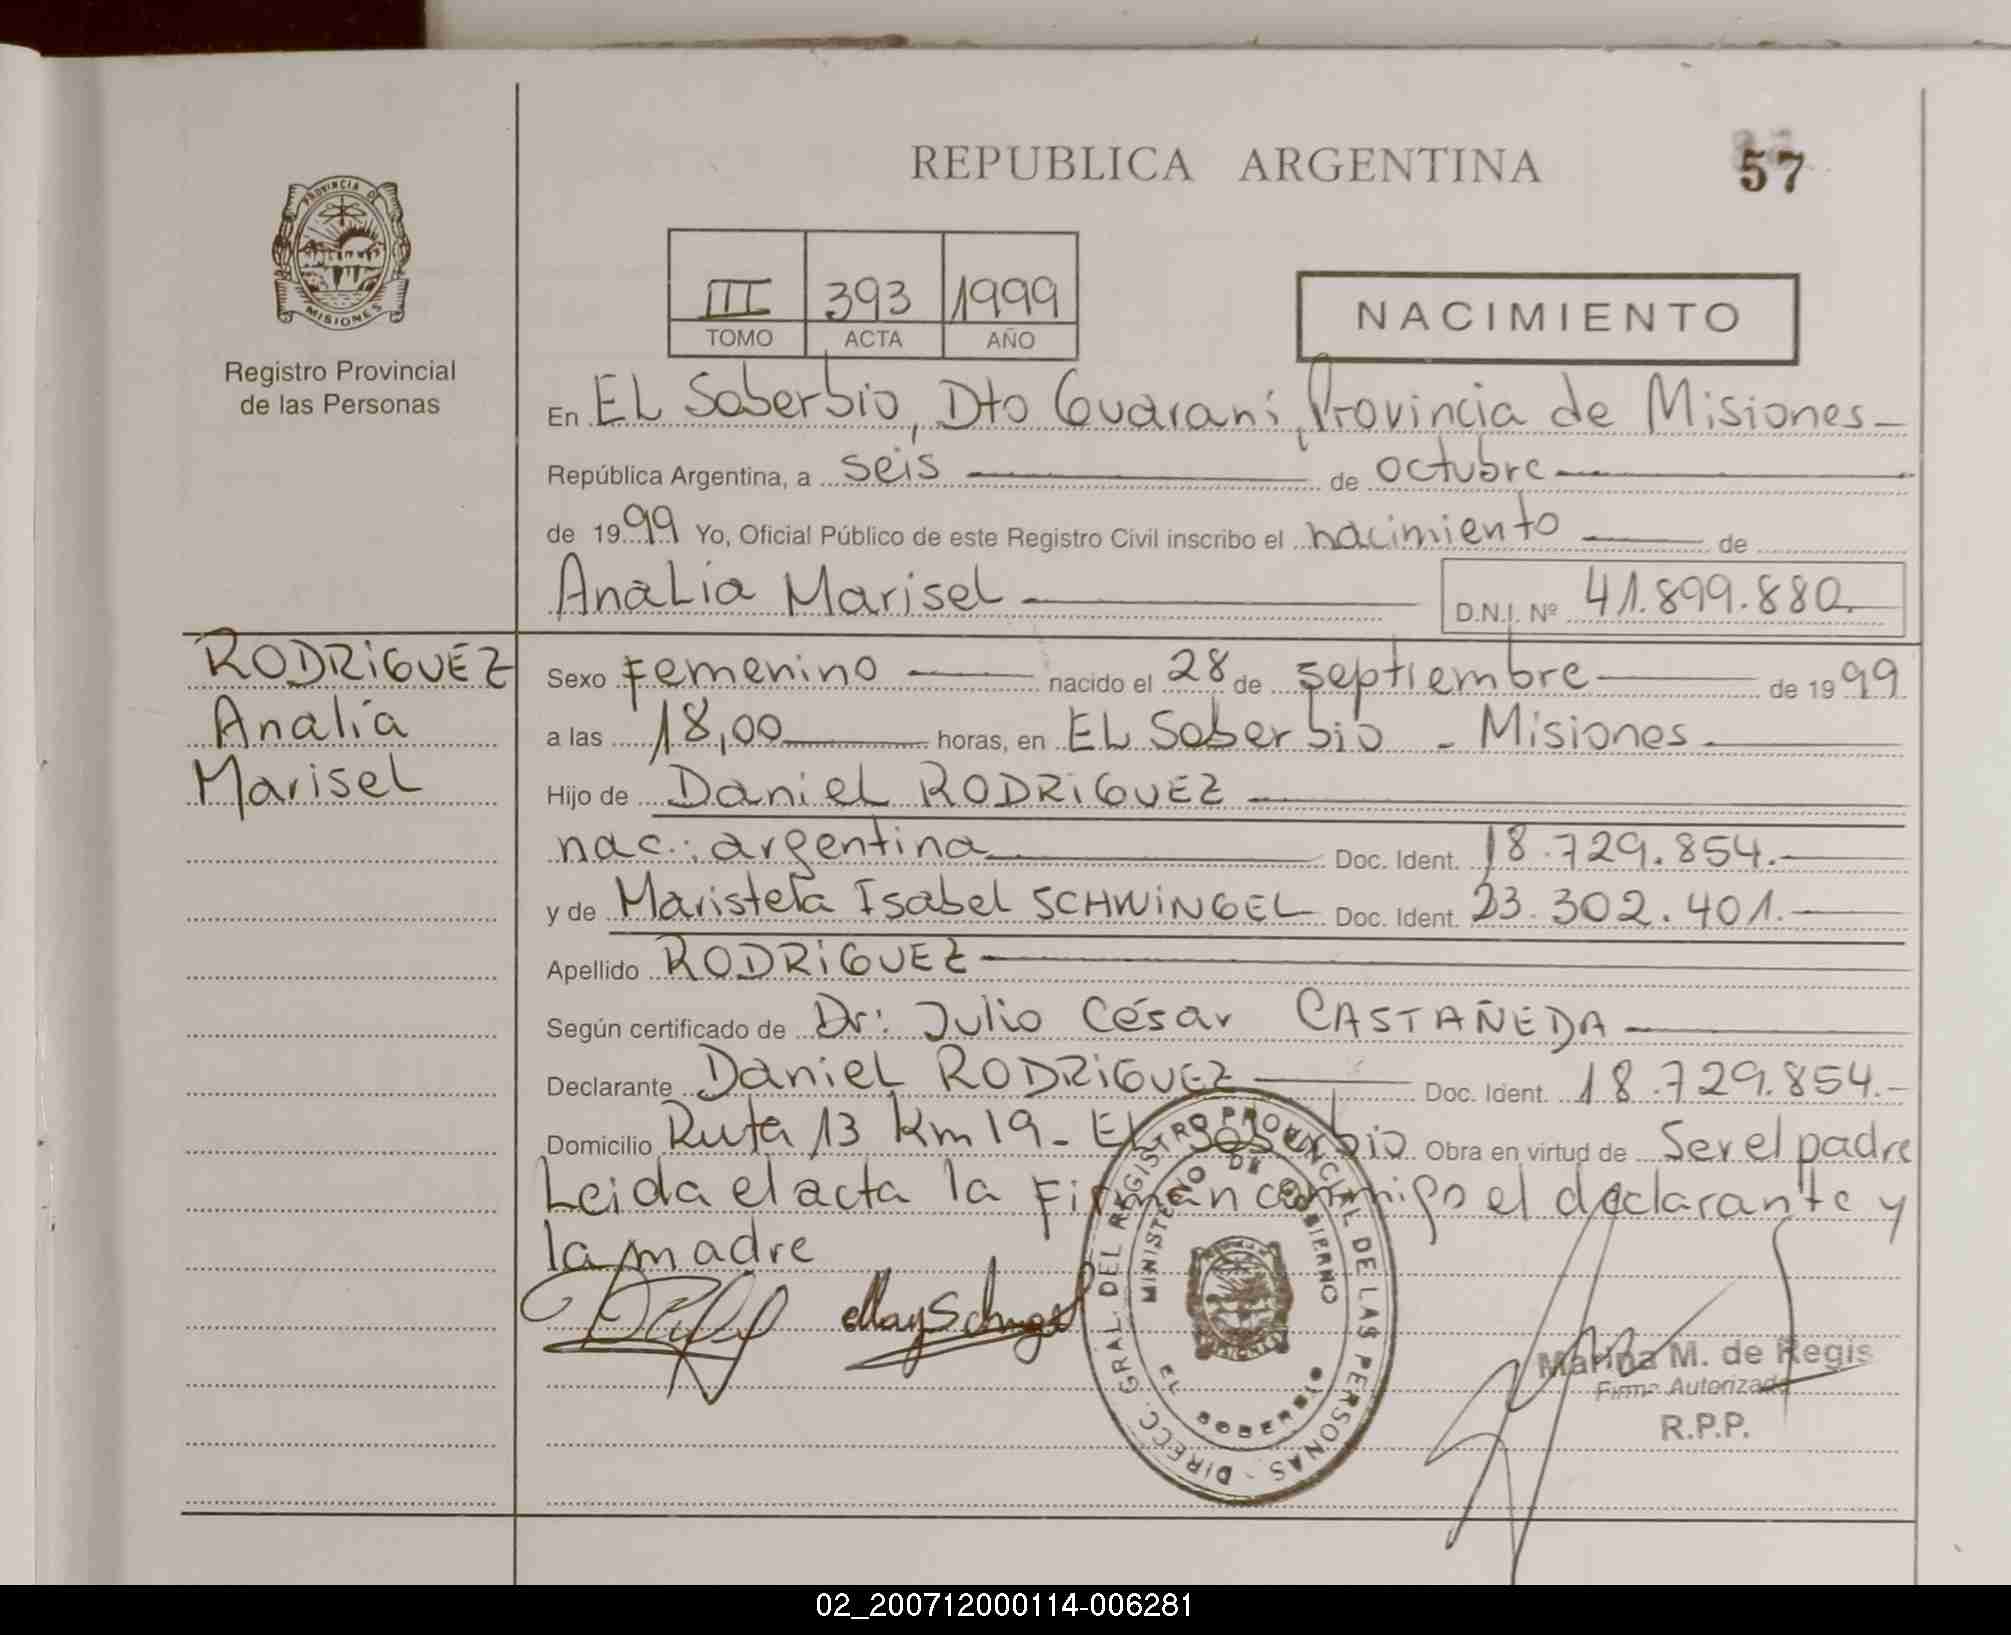 REPUBLICA ARGENTINA
57
PROVINCIA DE
MISIONES
Registro Provincial
de las Personas
III 393 1999
TOMO ACTA AÑO
NACIMIENTO
En EL Soberbio, Dto Guarani, Provincia de Misiones
República Argentina, a seis de octubre
de 1999 Yo, Oficial Público de este Registro Civil inscribo el nacimiento de
Analia Marisel D.N.I. Nº 41.899.880.
RODRiGUEZ
Analía
Marisel
Sexo Femenino nacido el 28 de septiembre de 1999
a las 18,00 horas, en EL Soberbio - Misiones
Hijo de Daniel RODRiGUEZ
nac.: argentina Doc. Ident. 18.729.854.
y de Maristela Isabel SCHWiNGEL Doc. Ident. 23.302.401.
Apellido RODRiGUEZ
Según certificado de Dr: Julio César CASTAÑEDA
Declarante Daniel RODRiGUEZ Doc. Ident. 18.729.854.-
Domicilio Ruta 13 Km 19 - EL Soberbio Obra en virtud de Ser el padre
Leida el acta la Firman conmigo el declarante y
la madre
DIRECC. GRAL. DEL REGISTRO PROVINCIAL DE LAS PERSONAS -
MINISTERIO DE GOBIERNO
EL SOBERBIO
Marina M. de Regis
Firma Autorizada
R.P.P.
02_200712000114-006281